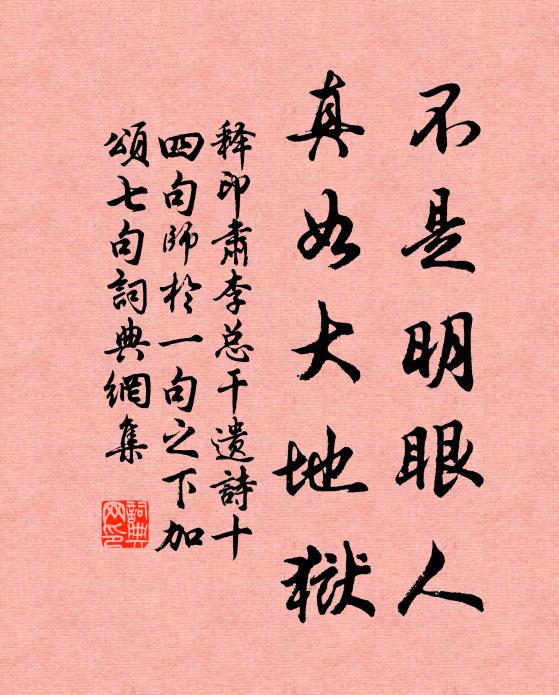 不是明眼人
真如大地獄
释印肃李总干遗詩十
四句師於一句之下加
頌七句詞典網集
詞典网印